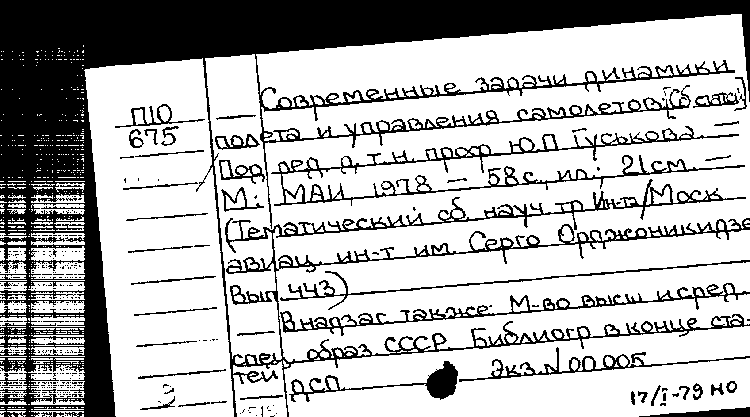 П10
675
Современные задачи динамики
полета и управления самолетов: [Сб статей]
Под ред. д.т.н. проф Ю.П Гуськова. —
М: МАИ, 1978 — 58 с, ил; 21 см. —
(Тематический сб науч тр Ин-та/Моск
авиац. ин-т им. Серго Орджоникидзе
Вып 443)
В надзаг также: М-во высш и сред.
спец. образ СССР. Библиогр в конце ста-
тей
ДСП Экз N 00005
17/I-79 НО